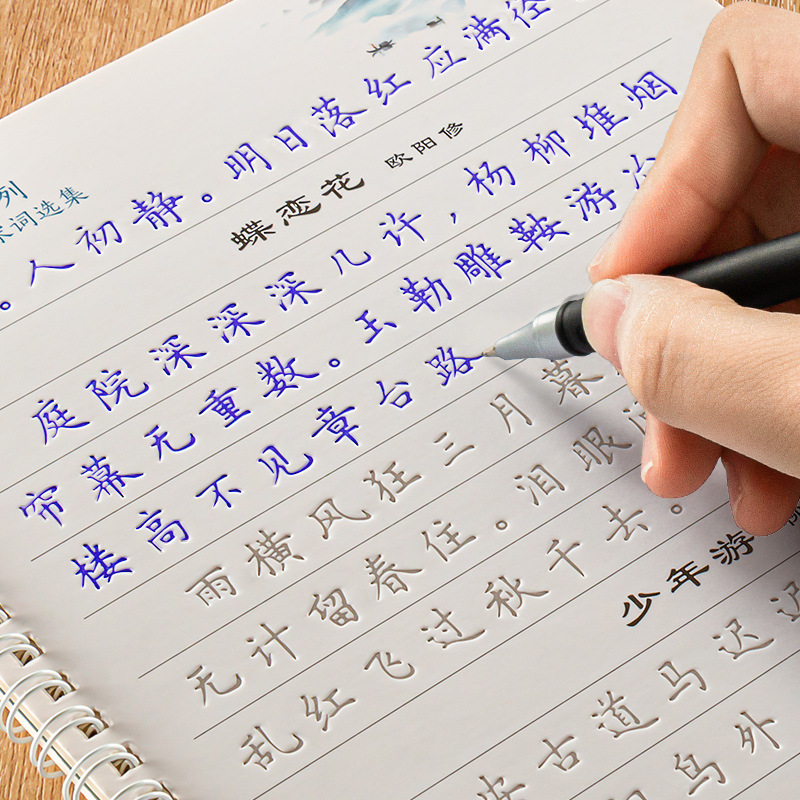 列
宋词选集
。人初静。明日落红应满径
蝶恋花 欧阳修
庭院深深深几许，杨柳堆烟
帘幕无重数。玉勒雕鞍游冶
楼高不见章台路
雨横风狂三月暮
无计留春住。泪眼问
乱红飞过秋千去。
少年游 柳
安古道马迟迟
鸟外